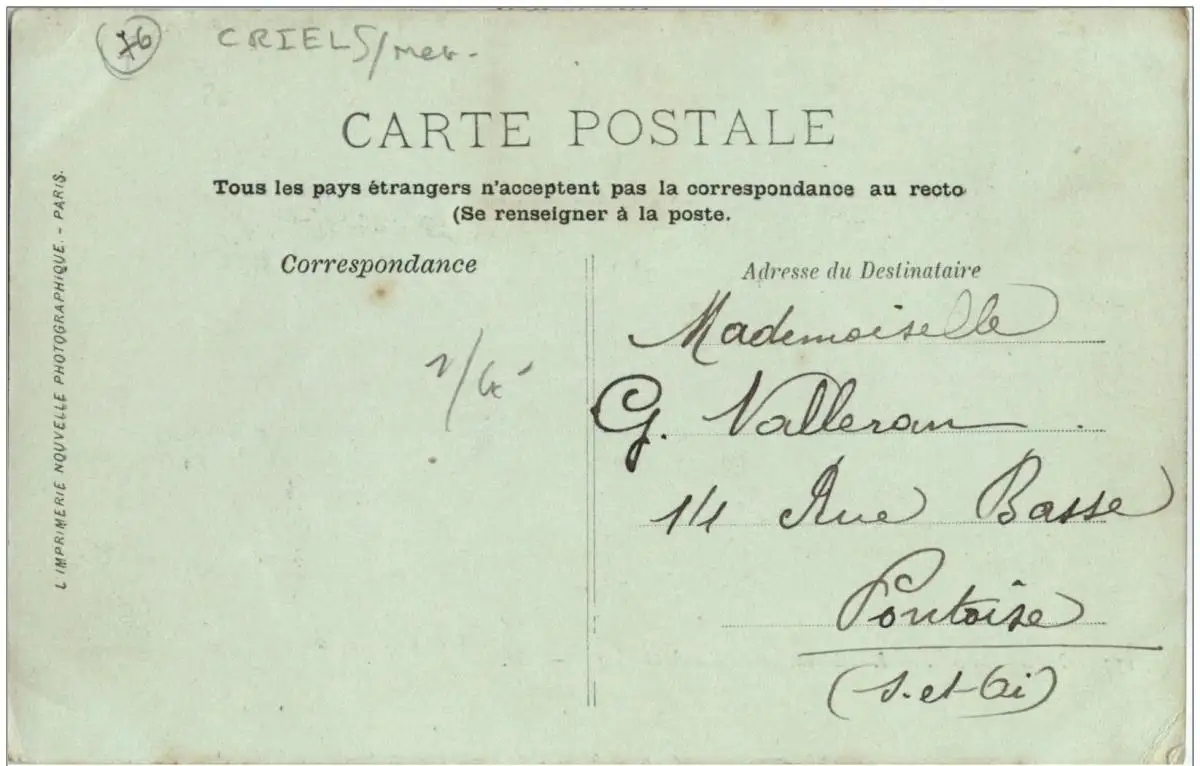 76 CRIEL S/mer.
CARTE POSTALE
Tous les pays étrangers n'acceptent pas la correspondance au recto
(Se renseigner à la poste.
Correspondance
Adresse du Destinataire
Mademoiselle
G. Valleran.
14 Rue Basse
Pontoise
(S.-et-Oi)
L'IMPRIMERIE NOUVELLE PHOTOGRAPHIQUE. - PARIS.